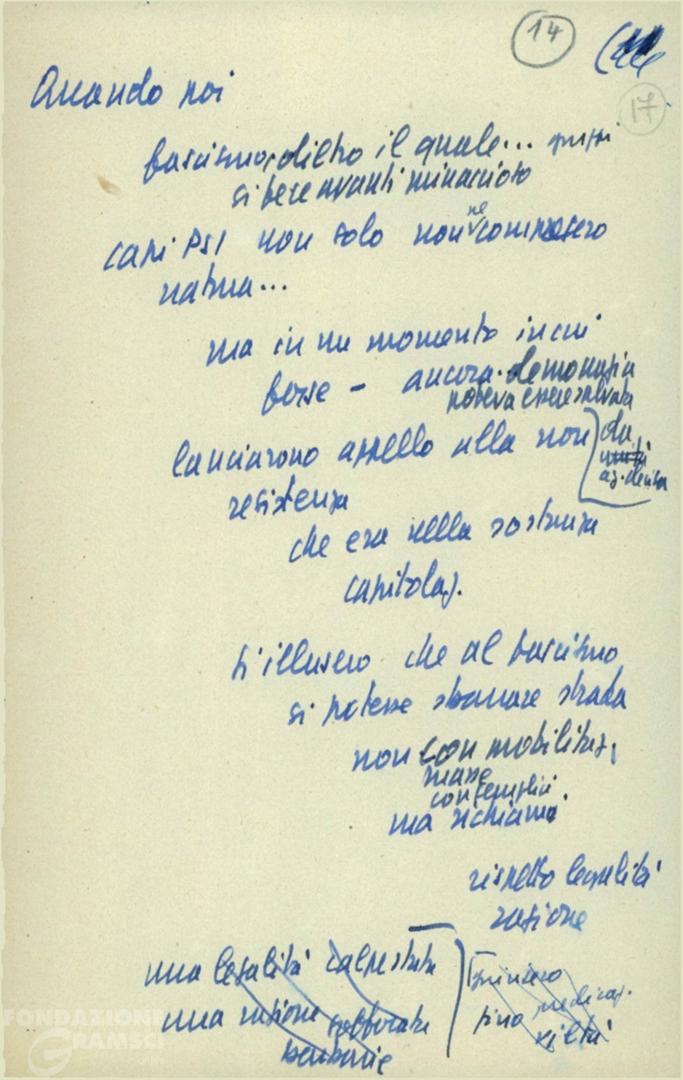 14
17
Quando poi
fascismo, dietro il quale...
si fece avanti minaccioso
capi PSI non solo non ne compresero
natura...
ma in un momento in cui
forse - ancora democrazia
poteva essere salvata
lanciarono appello alla non
resistenza
da
az. decisa
che era nella sostanza
capitolaz.
si illusero che al fascismo
si potesse sbarrare strada
non con mobilitaz.
masse
con semplici
ma richiami
rispetto legalità
ragione
una legalità calpestata
una ragione soffocata
barbarie
fino predicaz.
viltà
FONDAZIONE
GRAMSCI